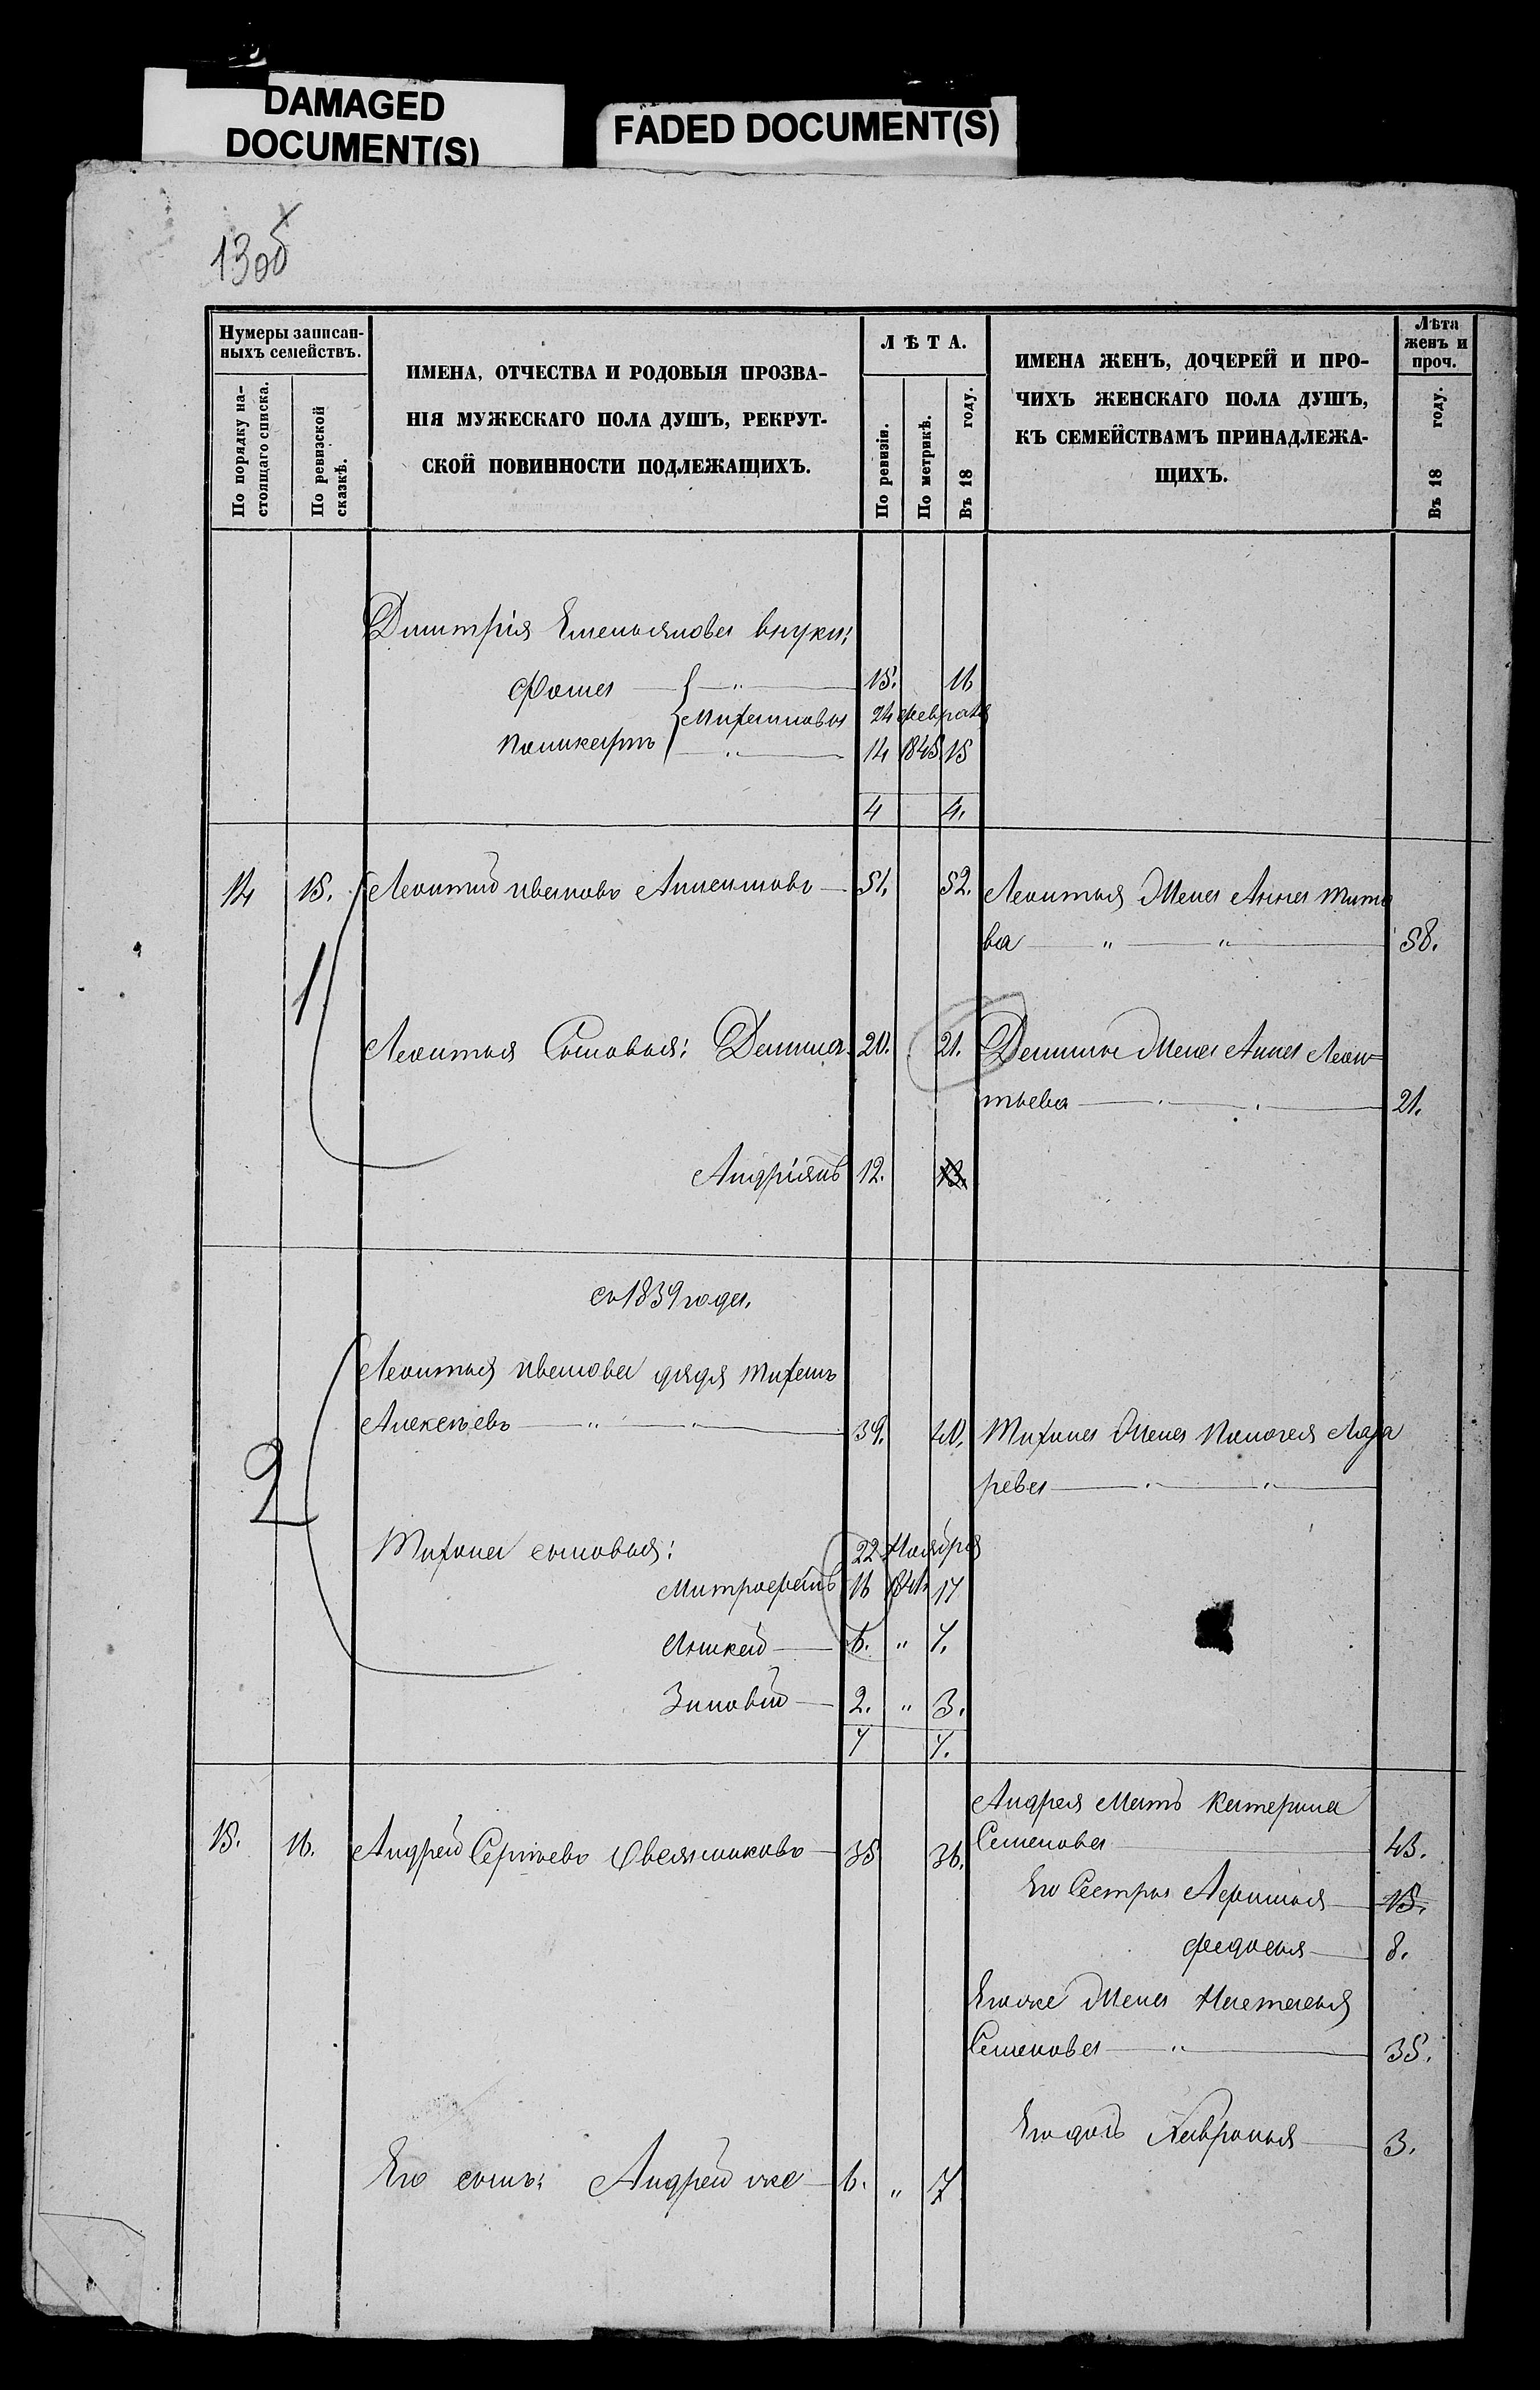 DAMAGED
DOCUMENT(S)
FADED DOCUMENT(S)
13об
Нумеры записан-
ныхъ семействъ.
По порядку на-
стоящаго списка.
По ревизской
сказкѣ.
ИМЕНА, ОТЧЕСТВА И РОДОВЫЯ ПРОЗВА-
НІЯ МУЖЕСКАГО ПОЛА ДУШЪ, РЕКРУТ-
СКОЙ ПОВИННОСТИ ПОДЛЕЖАЩИХЪ.
ЛѢТА.
По ревизіи.
По метрикѣ.
Въ 18 году.
ИМЕНА ЖЕНЪ, ДОЧЕРЕЙ И ПРО-
ЧИХЪ ЖЕНСКАГО ПОЛА ДУШЪ,
КЪ СЕМЕЙСТВАМЪ ПРИНАДЛЕЖА-
ЩИХЪ.
Лѣта
женъ и
проч.
Въ 18 году.
Дмитрія Емельянова внуки:
Фома " 15. 16
24 февраля
Поликарпъ " 14 1845 15
4 4.
14 15. Леонтій Ивановъ 51. 52. Леонтья Жена Анна Тито
ва " " 58.
1
Леонтья Сыновья: Данила 20. 21. Данилы Жена Анна Леон=
тьева 21.
Андріянъ 12. 13.
съ 1839 года.
Леонтья Иванова дядя Тихонъ
Алексѣевъ " 39. 40. Тихона Жена Лаза
рева
2
Тихона сыновья: 22 Ноября
Митрофанъ 16 1841 17
6. " 7.
Зиновій 2. " 3.
7 7.
15. 16. Андрей Сергѣевъ 35 36.
Андрея Мать Катерина
Семенова 43.
Его Сестры 15.
Федосья 8.
Его же Жена Настасья
Семенова " 35.
Его дочь Хавронья 3.
Его сынъ: Андрей же 6. " 7